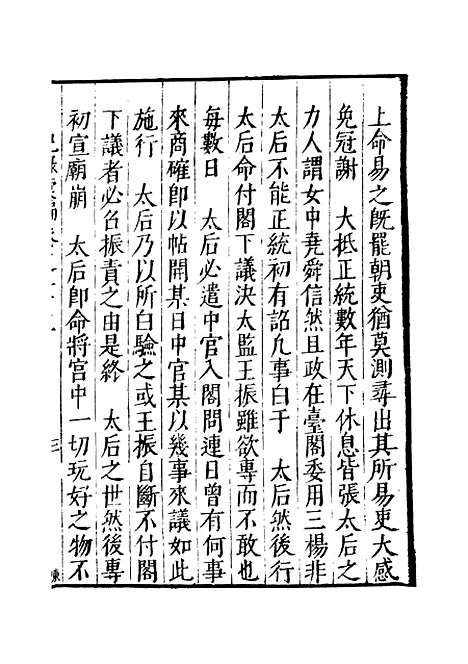 上命易之旣罷朝吏猶莫測尋出其所易吏大感
免冠謝　大抵正統數年天下休息皆張太后之
力人謂女中堯舜信然且政在臺閣委用三楊非
太后不能正統初有詔凢事白于　太后然後行
太后命付閣下議決太監王振雖欲專而不敢也
每數日　太后必遣中官入閣問連日曾有何事
來商確卽以帖開某日中官某以幾事來議如此
施行　太后乃以所白驗之或王振自斷不付閣
下議者必召振責之由是終　太后之世然後專
初宣廟崩　太后卽命將宮中一切玩好之物不